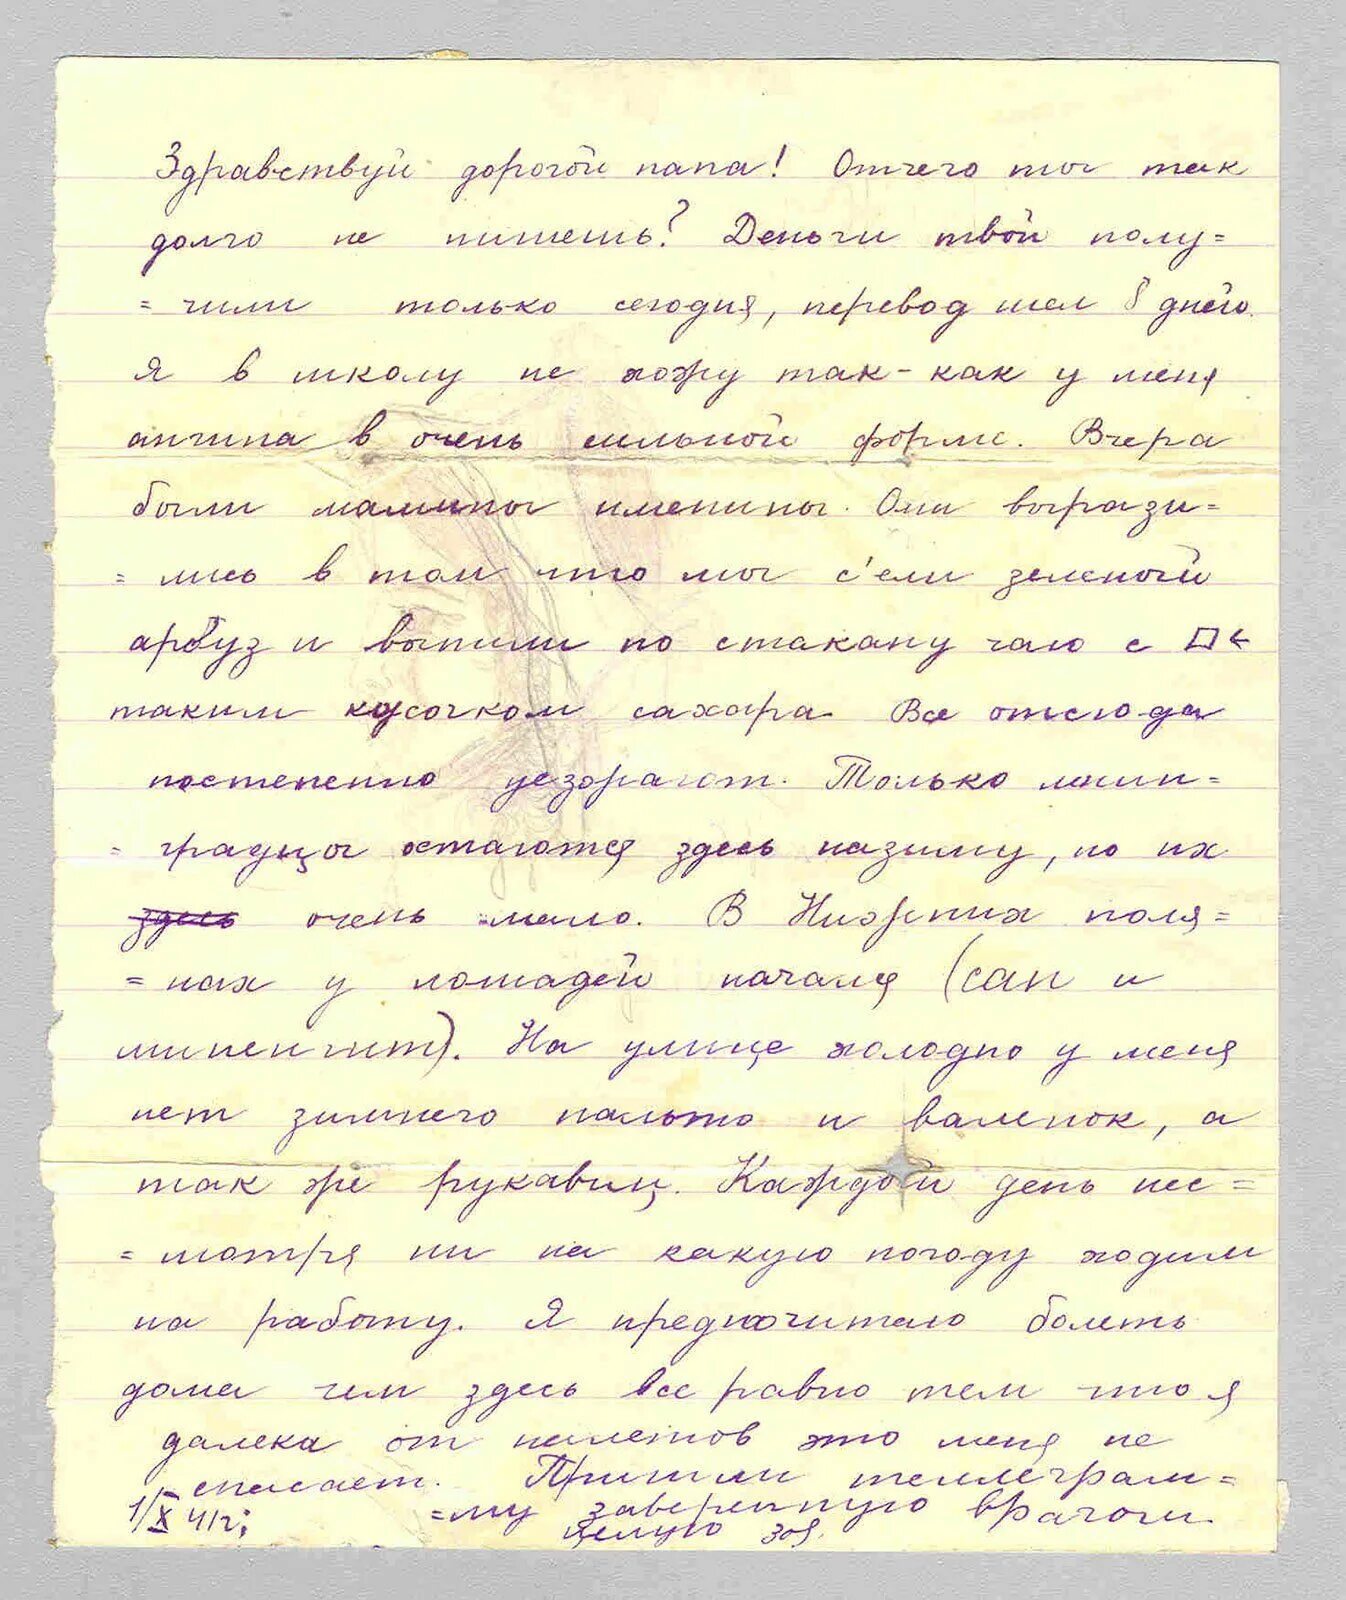 Здравствуй дорогой папа! Отчего ты так
долго не пишешь? Деньги твои полу=
= чили только сегодня, перевод шел 8 дней.
Я в школу не хожу так-как у меня
ангина в очень сильной форме. Вчера
были мамины именины. Они вырази=
= лись в том что мы с'ели зеленый
арбуз и выпили по стакану чаю с □←
таким кусочком сахара. Все отсюда
постепенно уезжают. Только ленин=
= градцы остаются здесь назиму, но их
здесь очень мало. В Нижних поля=
= нах у лошадей начался (сап и
минингит). На улице холодно у меня
нет зимнего пальто и валенок, а
так же рукавиц. Каждый день нес=
= мотря ни на какую погоду ходим
на работу. Я предпочитаю болеть
дома чем здесь все равно тем что я
далека от налетов это меня не
спасает. Пришли теллеграм=
1/X 41г; =му заверенную врачом.
целую Зоя.